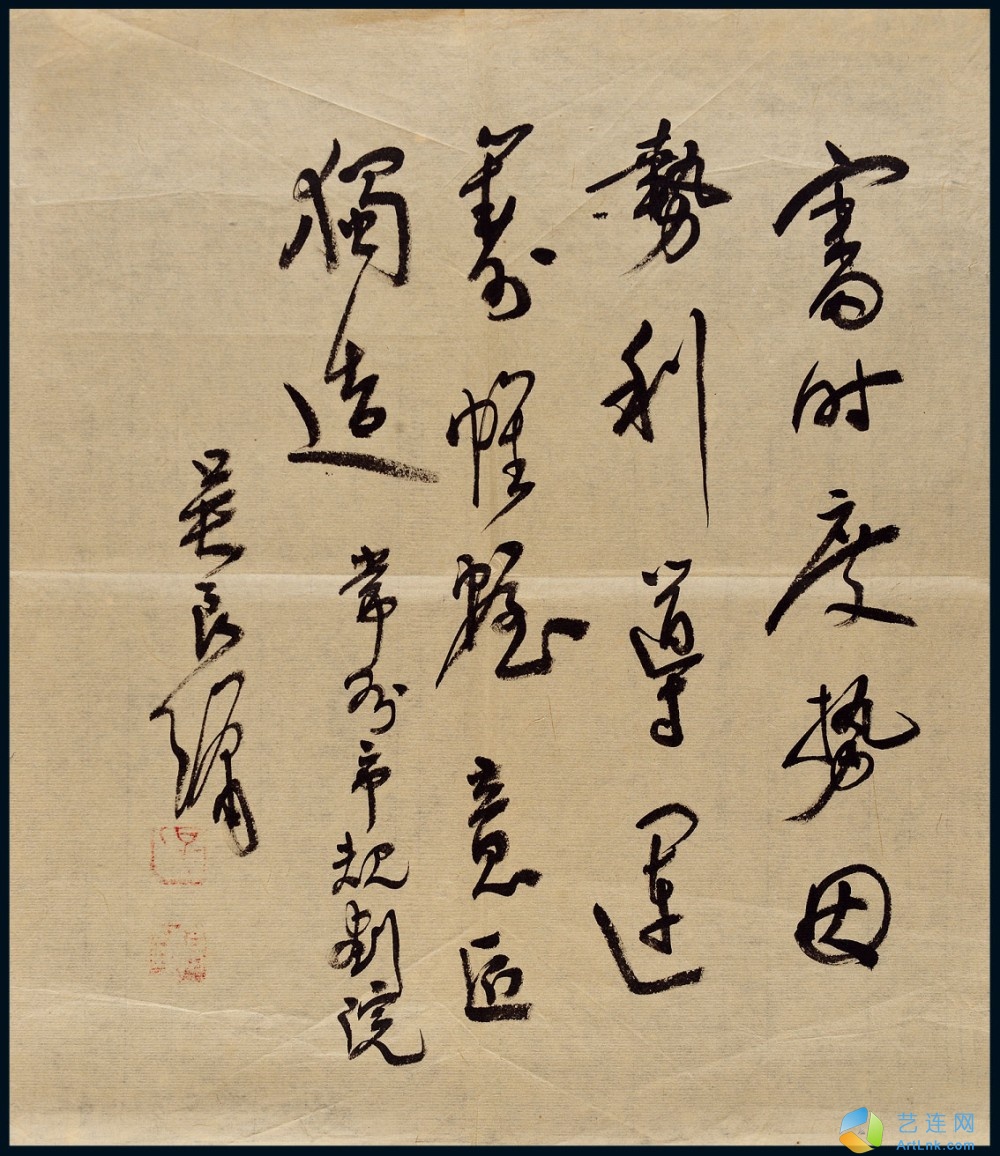 審时度势因
勢利導運
籌帷幄意匠
獨造
常州市規劃院
吳良鏞
艺连网
ArtLnk.com